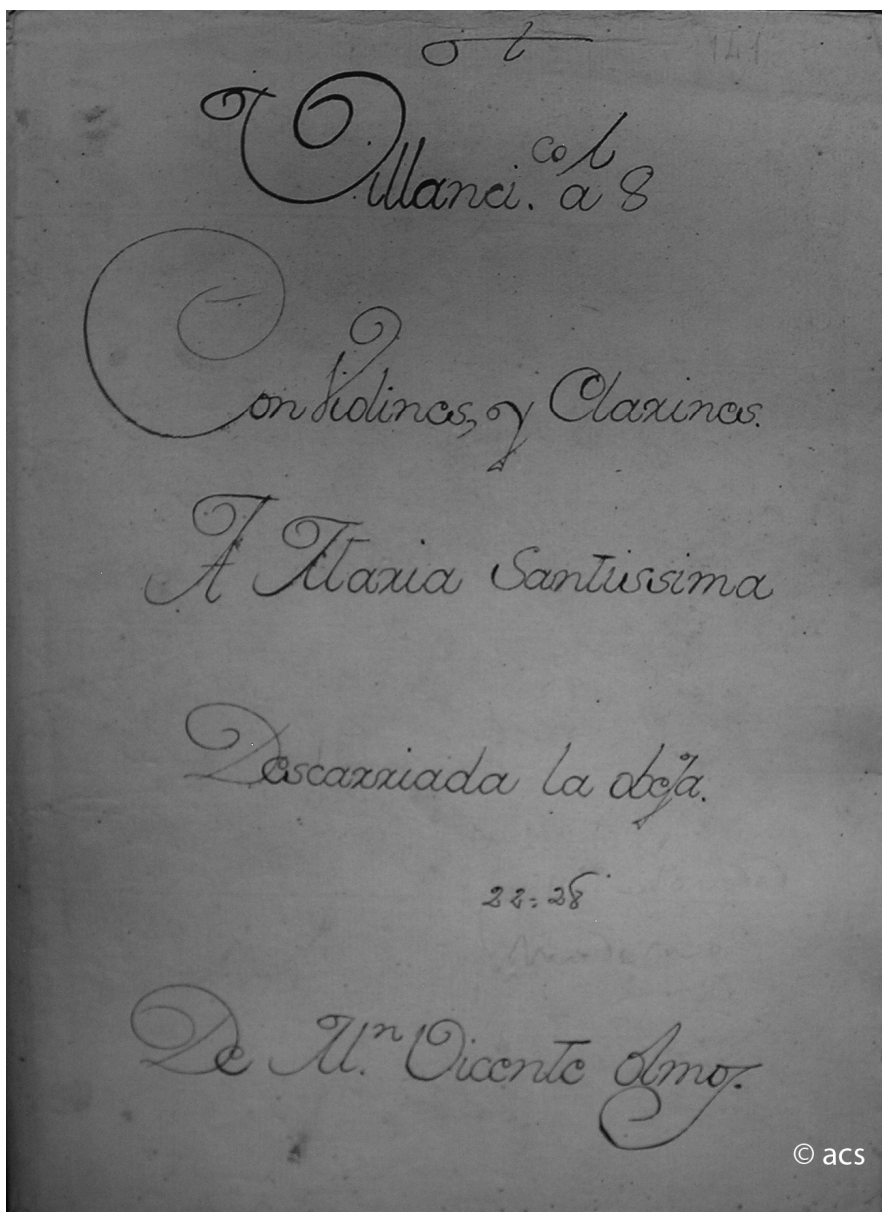 141
Villanci.co a 8
Con Violines, y Clarines.
A Maria Santissima
Descarriada la obeja.
22=28
De M.n Vicente Olmos.
© acs